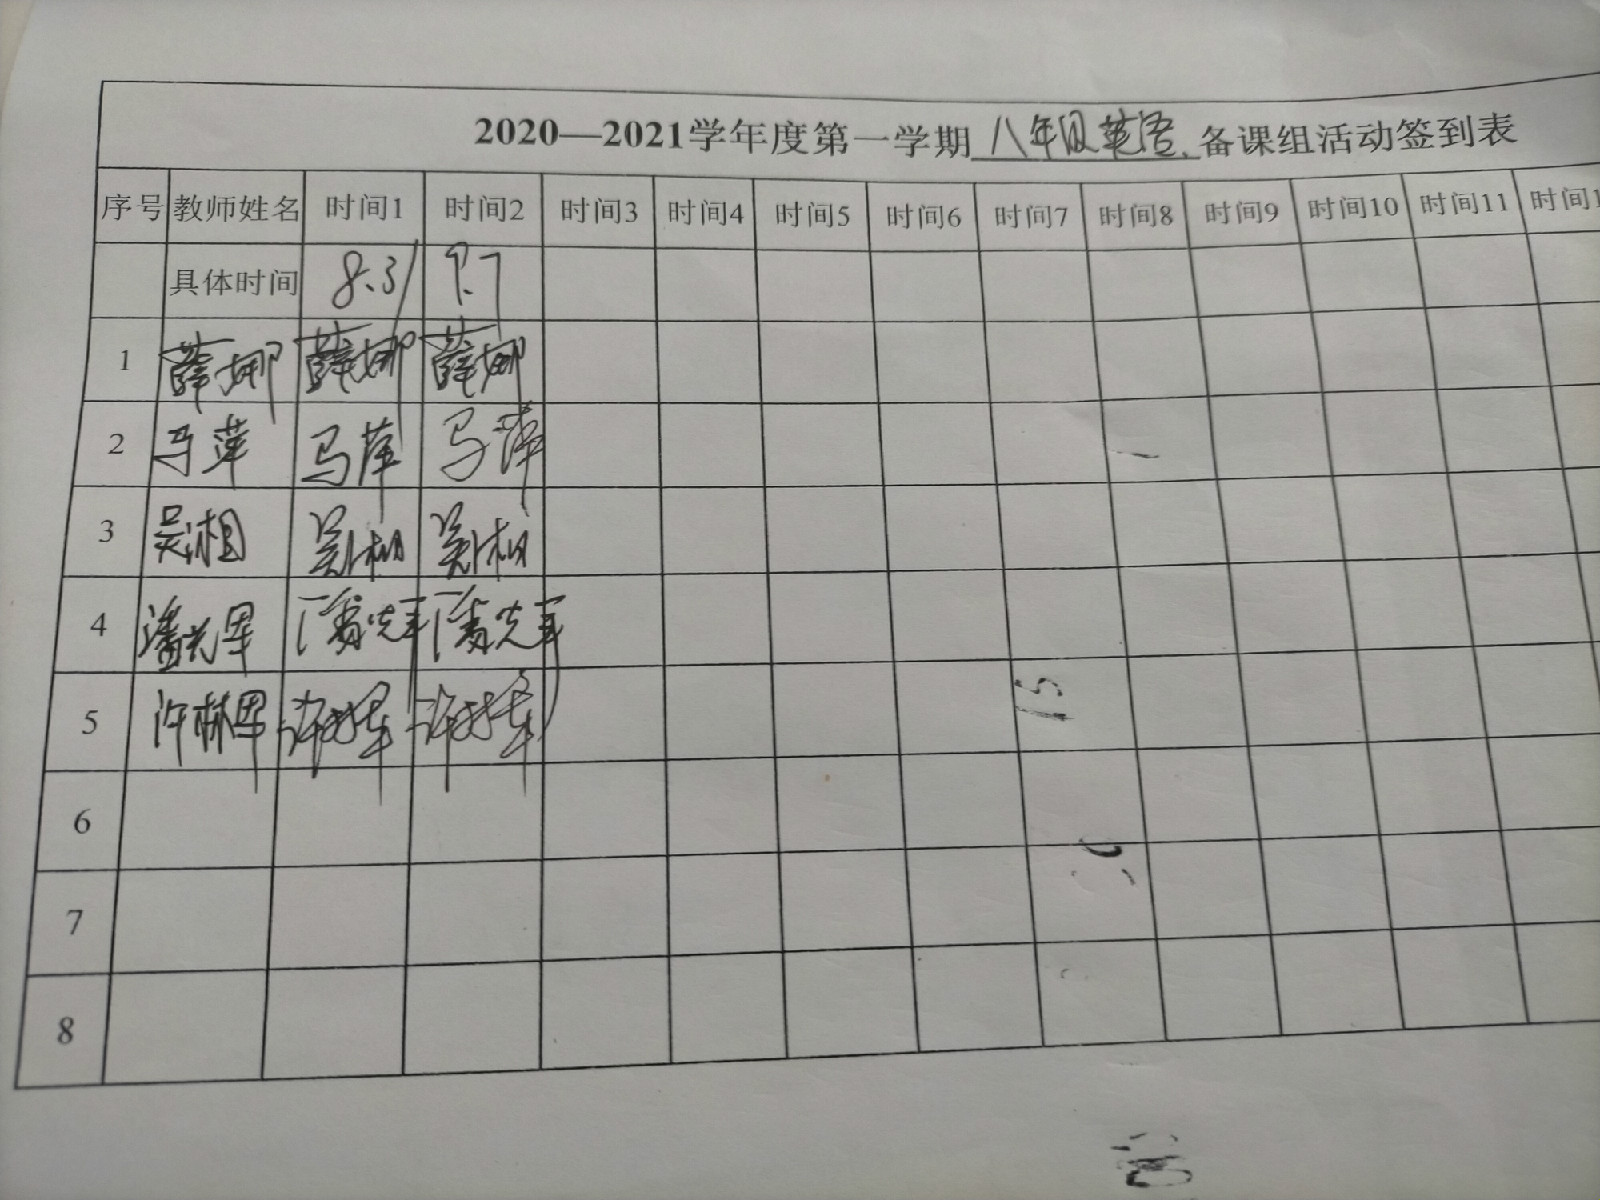 2020—2021学年度第一学期八年级英语备课组活动签到表
序号 教师姓名 时间1 时间2 时间3 时间4 时间5 时间6 时间7 时间8 时间9 时间10 时间11 时间1
具体时间 8.31 9.7
1 薛娜 薛娜 薛娜
2 马萍 马萍 马萍
3 吴湘 吴湘 吴湘
4 潘先军 潘先军 潘先军
5 许林军 许林军 许林军
6
7
8